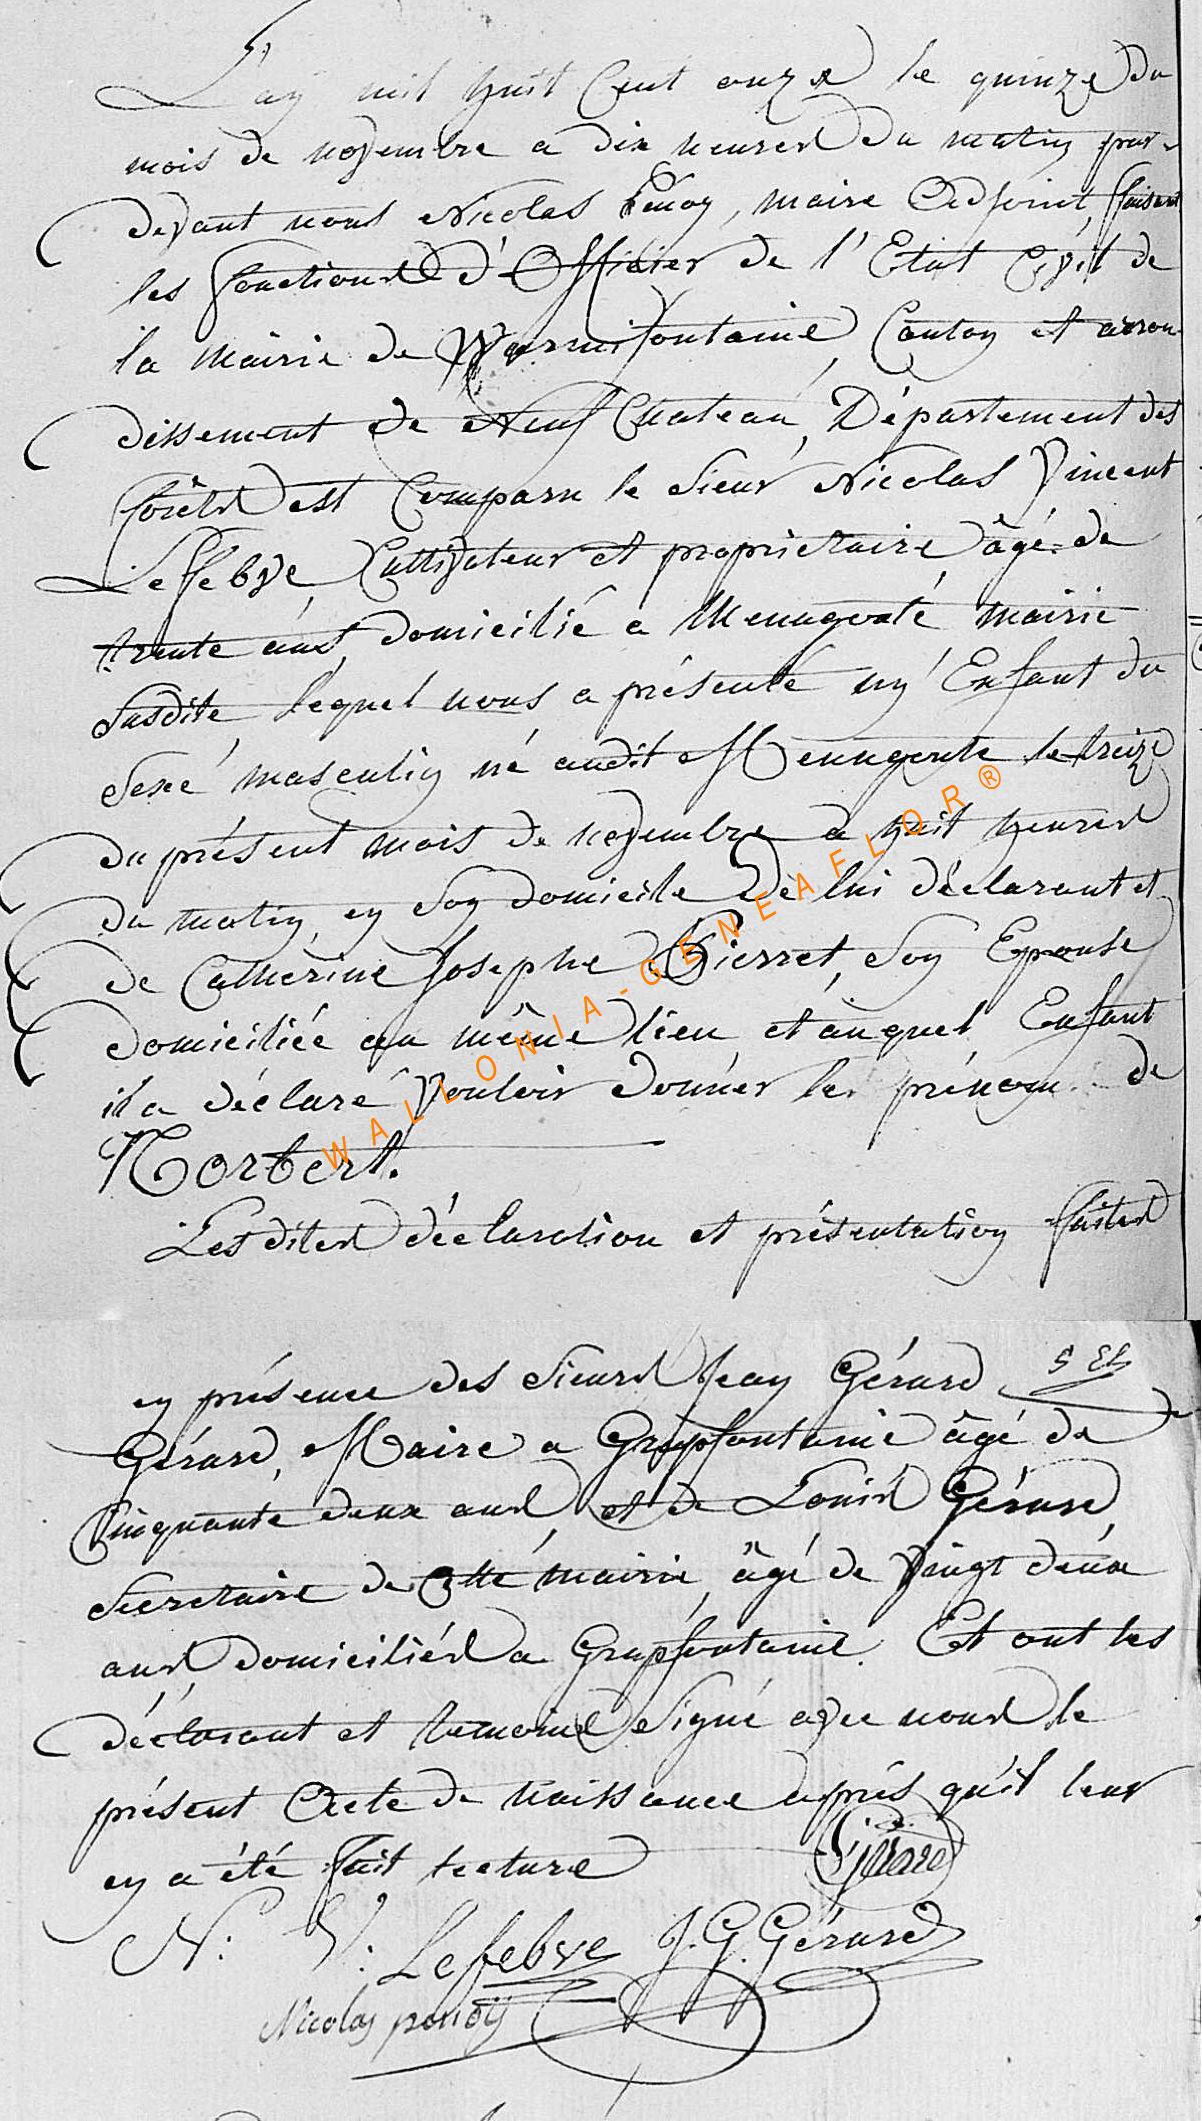 L'an mil huit Cent onze le quinze du
mois de novembre a dix heures du matin par-
devant nous Nicolas maire Adjoint, faisant
les fonctions d'Officier de l'Etat Civil de
la Mairie de Warmifontaine, Canton et arron
dissement de Neuf Chateau, Département des
forêts est Comparu le Sieur Nicolas Vincent
Lefebve, Cultivateur et propriétaire âgé de
trente ans, domicilié a Menugoute mairie
susdite, lequel nous a présenté un Enfant du
sexe masculin né audit Menugoute le treize
du présent mois de novembre a huit heures
du matin, en son domicile de lui déclarant et
de Catherine Josephe Pierret, son Epouse
domiciliée au même lieu et auquel Enfant
il a déclaré vouloir donner le prénom de
Norbert.
Les dites déclaration et présentation faites
en présence des Sieurs Jean Gérard
Gérard, Maire a Grapfontaine âgé de
Cinquante deux ans et de Louis Gérard
Secretaire de Cette mairie, âgé de vingt deux
ans, domiciliés a Grapfontaine. Et ont les
déclarant et temoins Signé avec nous le
présent Acte de Naissance après qu'il leur
en a été fait lecture
Gérard
N: V: Lefebve J. G. Gérard
Nicolas
WALLONIA-GENEAFLOR®